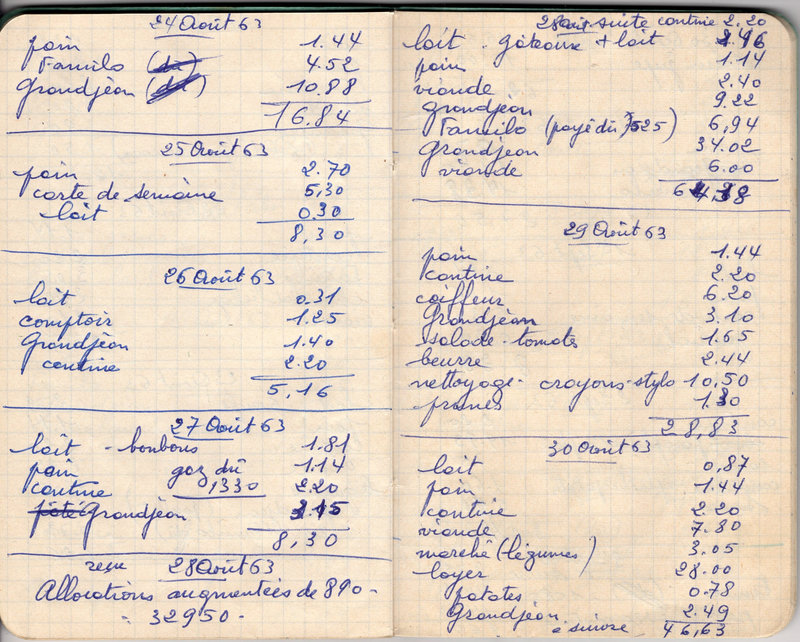 24 Août 63
pain 1.44
Familo (dû) 4.52
Grandjèan (dû) 10.88
16.84
25 Août 63
pain 2.70
carte de semaine 5,30
lait 0.30
8,30
26 Août 63
lait 0.31
comptoir 1.25
Grandjèan 1.40
cantine 2.20
5,16
27 Août 63
lait - bonbons 1.81
pain gaz dû 1.14
cantine 1330 2.20
Grandjèan 3.15
8,30
reçu 28 Août 63
Allocations augmentées de 890 -
- 32950 -
28 Août suite cantine 2.20
lait - gâteaux + lait 2.46
pain 1.14
viande 2.40
grandjèan 9.22
Familo (payé dû 7525) 6,94
Grandjean 34.02
viande 6.00
64,38
29 Août 63
pain 1.44
cantine 2.20
coiffeur 6.20
Grandjèan 3.10
salade - tomats 1.65
beurre 2.44
nettoyage - crayons - stylo 10,50
prunes 1.30
28,83
30 Août 63
lait 0,87
pain 1.44
cantine 2.20
viande 7.80
marché (légumes) 3.05
loyer 28.00
patates 0.78
Grandjèan 2.49
à suivre 46,63